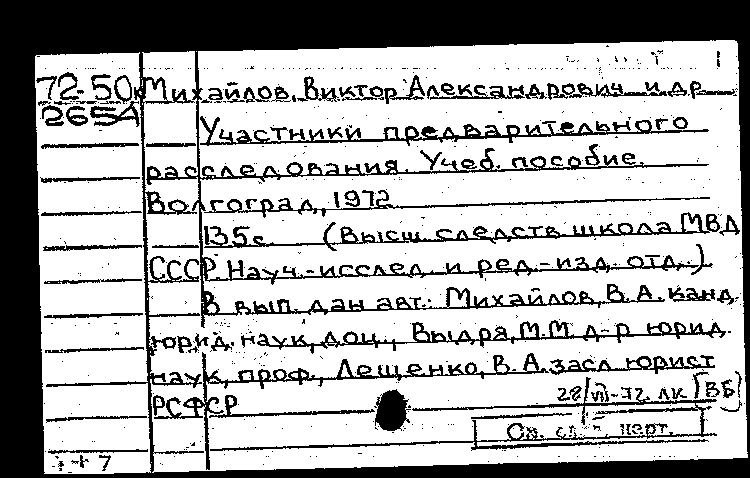 72-50к Михайлов, Виктор Александрович и др
2654 Участники предварительного
расследования. Учеб. пособие.
Волгоград, 1972
135с (Высш. следств школа МВД
СССР. Науч.-исслед. и ред.-изд. отд.)
В вып. дан авт.: Михайлов, В. А. канд.
юрид. наук, доц., Выдря, М.М. д-р юрид.
наук, проф., Лещенко, В. А. засл юрист
РСФСР
28/VII-72. ЛК [ВБ]
См.
7